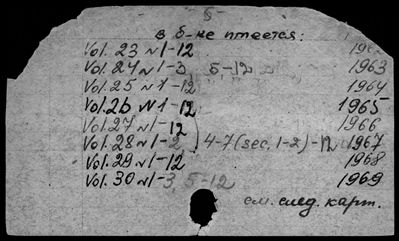 - 5 -
в б-ке имеется:
Vol. 23 N1-12
Vol. 24 N1-3, 5-12 1963
Vol. 25 N1-12 1964
Vol. 26 N1-12 1965
Vol. 27 N1-12 1966
Vol. 28 N1-2, 4-7 (sec. 1-2) - 12 1967
Vol. 29 N1-12 1968
Vol. 30 N1-3, 5-12 1969
см. след. карт.